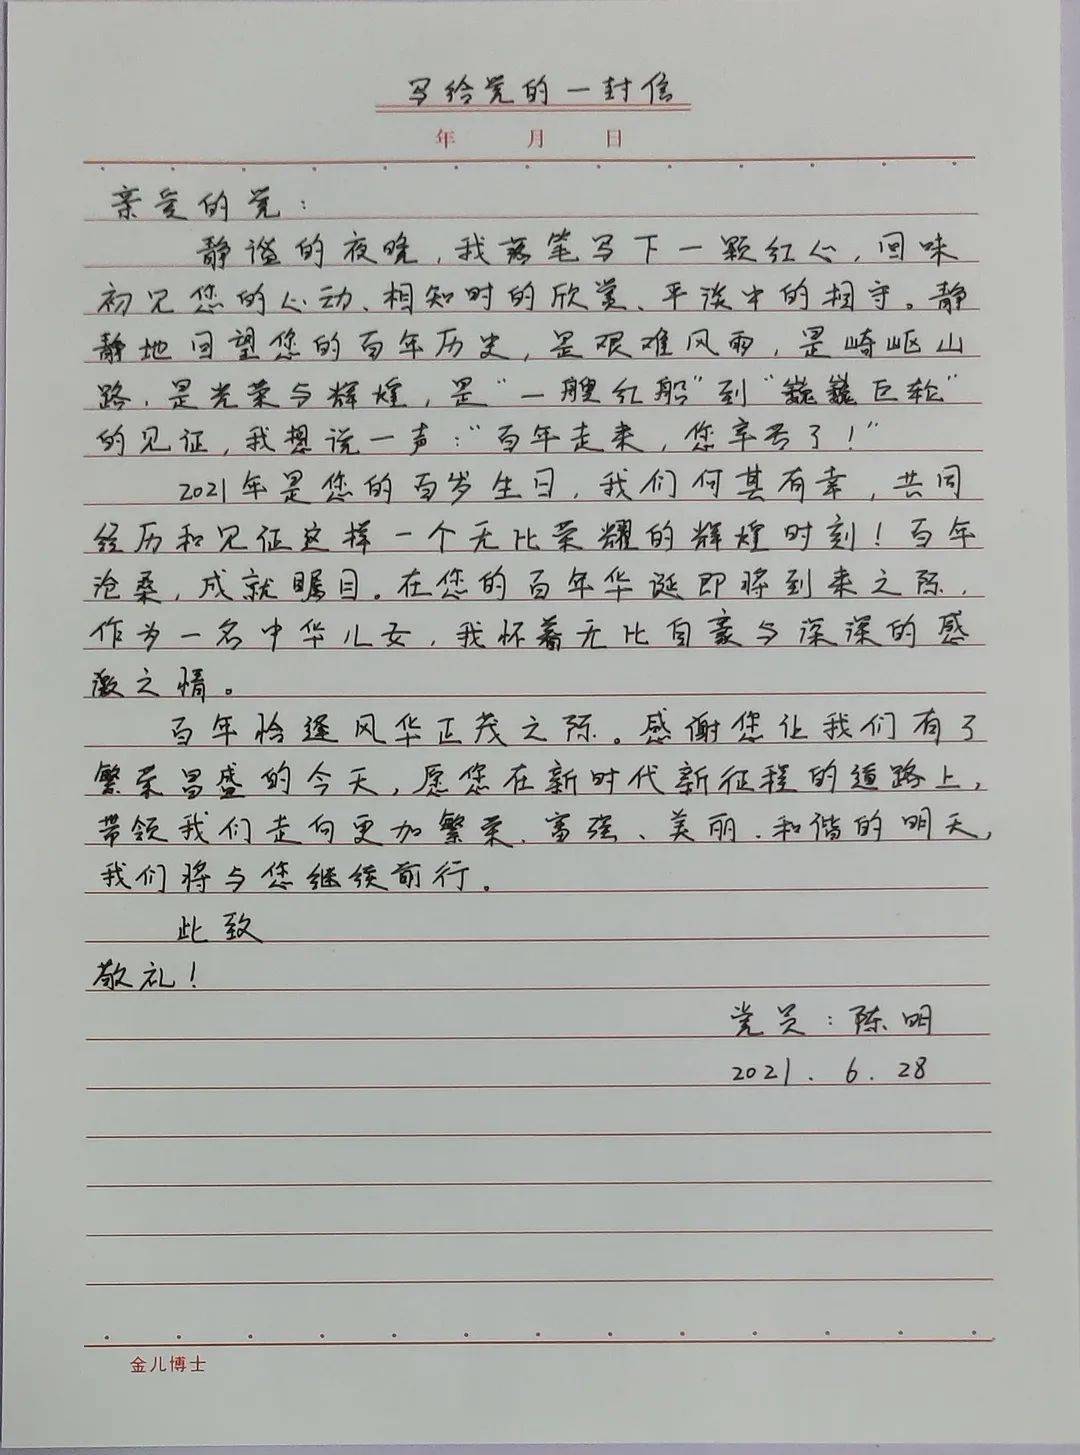 写给党的一封信
年 月 日
亲爱的党：
静谧的夜晚，我落笔写下一颗红心，回味
初见您的心动、相知时的欣赏、平淡中的相守。静
静地回望您的百年历史，是艰难风雨，是崎岖山
路，是光荣与辉煌，是“一艘红船”到“巍巍巨轮”
的见证，我想说一声：“百年走来，您辛苦了！”
2021年是您的百岁生日，我们何其有幸，共同
经历和见证这样一个无比荣耀的辉煌时刻！百年
沧桑，成就瞩目。在您的百年华诞即将到来之际，
作为一名中华儿女，我怀着无比自豪与深深的感
激之情。
百年恰逢风华正茂之际。感谢您让我们有了
繁荣昌盛的今天，愿您在新时代新征程的道路上，
带领我们走向更加繁荣、富强、美丽、和谐的明天，
我们将与您继续前行。
此致
敬礼！
党员：陈明
2021.6.28
金儿博士